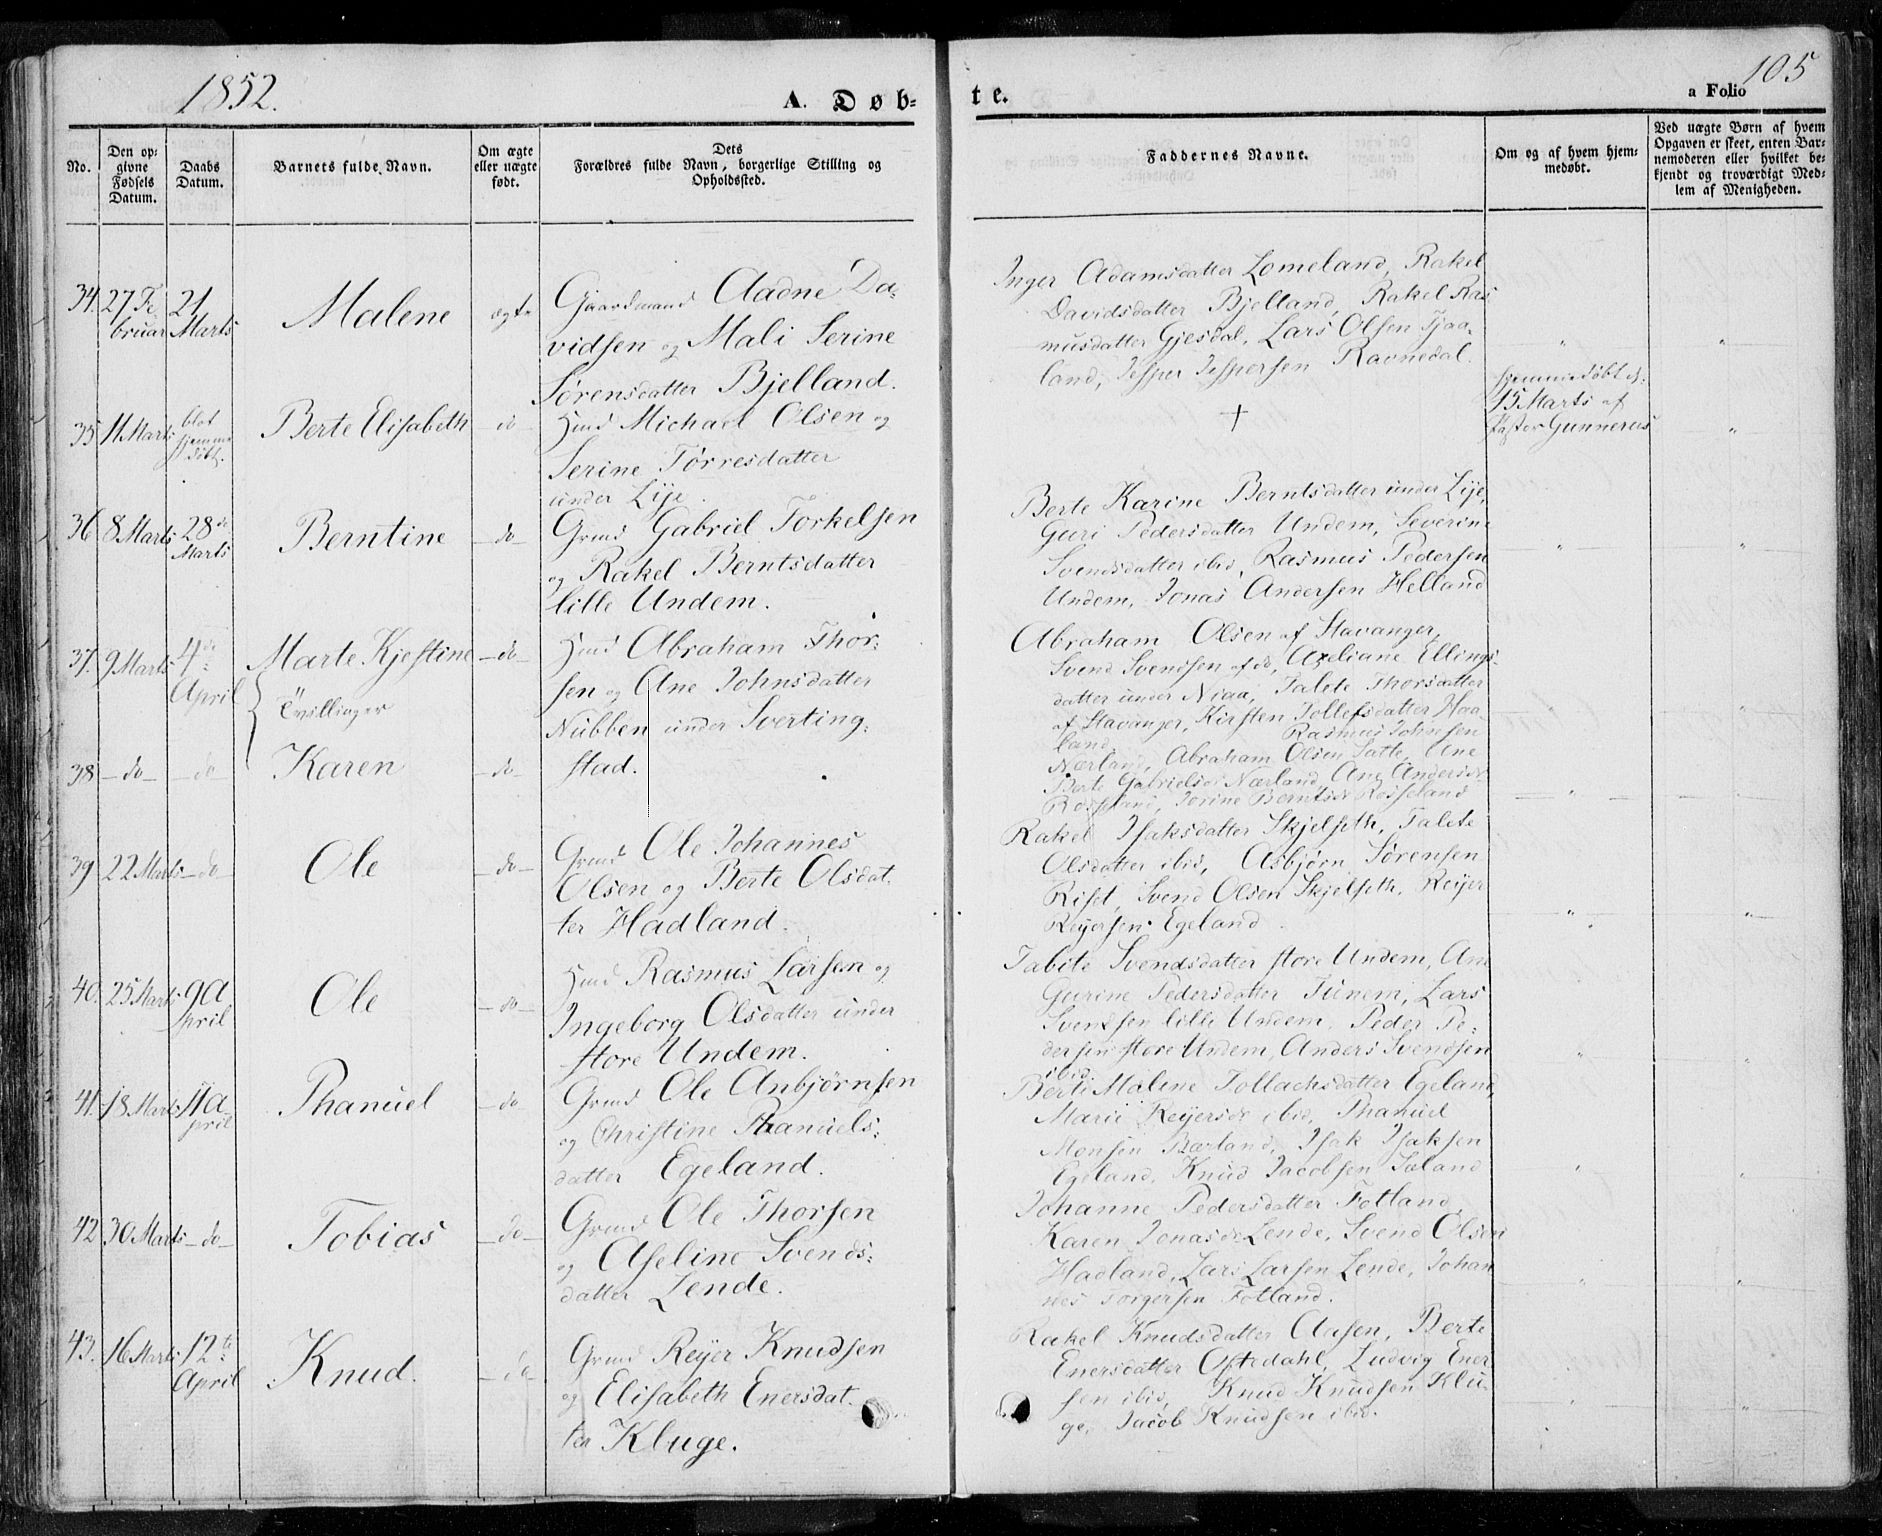 1852.
A. Døb-
te.
a Folio 105
No.
Den op-
givne
Fødsels
Datum.
Daabs
Datum.
Barnets fulde Navn.
Om ægte
eller uægte
født.
Dets
Forældres fulde Navn, borgerlige Stilling og
Opholdssted.
Faddernes Navne.
Om og af hvem hjem-
medøbt.
Ved uægte Børn af hvem
Opgaven er skeet, enten Bar-
nemoderen eller hvilket be-
kjendt og troværdigt Med-
lem af Menigheden.
34. 27 Fe
bruar
21
Marts
Malene
ægte
Gaardmand Aadne Da-
vidsen og Mali Serine
Sørensdatter Bjelland.
Inger Adamsdatter Lomeland, Rakel
Davidsdatter Bjelland, Rakel Ras
musdatter Gjesdal, Lars Olsen Tjaa-
land, Jesper Jespersen Ravnedal.
" "
35 11 Marts
blot
hjemme
døbt.
Berte Elisabeth
do
Huusmd Michael Olsen og
Serine Tørresdatter
under Lije.
+
hjemmedøbt d.
15 Marts af
Pastor Gunnerus
"
36 8 Marts
28de
Marts
Berntine
do
Grmd Gabriel Torkelsen
og Rakel Berntsdatter
lille Undem.
Berte Karine Berntsdatter under Lije,
Guri Pedersdatter Undem, Severine
Svendsdatter ibid, Rasmus Pedersen
Undem, Jonas Andersen Helland
" "
37. 9 Marts
4de
April
Marte Kjestine
Tvillinger
do
Hmd Abraham Thor-
sen og Ane Johnsdatter
Nubben under Sverting-
stad.
Abraham Olsen af Stavanger,
Svend Svendsen af do, Axeliane Ellings-
datter under Niaa, Talete Thorsdatter
af Stavanger, Kirsten Tollefsdatter Haa-
land,
" "
38 do do
Karen
do
Rasmus Johnsen
Nærland, Abraham Olsen Satte, Ane
Berte Gabrielsdr Nærland, Ane Andersdr
Rosseland, Serine Berntsdr Rosseland
" "
39 22 Marts do
Ole
do
Grmd Ole Johannes
Olsen og Berte Olsdat-
ter Hadland.
Rakel Isaksdatter Skjelseth, Talete
Olsdatter ibid, Asbjørn Sørensen
Riset, Svend Olsen Skjelseth, Reyer
Reyersen Egeland.
" "
40. 25 Marts
9 A
pril
Ole
do
Hmd Rasmus Larsen og
Ingeborg Olsdatter under
store Undem.
Tabite Svendsdatter store Undem, Ane
Gurine Pedersdatter Tunem, Lars
Svendsen lille Undem, Peder Pe-
dersen store Undem, Anders Svendsen
ibid.
" "
41. 18 Marts
11 A
pril
Phanuel
do
Grmd Ole Anbjørnsen
og Christine Phanuels-
datter Egeland.
Berte Malene Tollachsdatter Egeland,
Marie Reyersdr ibid, Phanuel
Monsen Bærland, Isak Isaksen
Egeland, Knud Jacobsen Jæland
" "
42 30 Marts do
Tobias
do
Grmd Ole Thorsen
og Aseline Svends-
datter Lende.
Johanne Pedersdatter Fotland,
Karen Jonasdr Lende, Svend Olsen
Hadland, Lars Larsen Lende, Johan
nes Torgersen Fotland.
" "
43. 16 Marts
12te
April
Knud.
do
Grmd Reyer Knudsen
og Elisabeth Enersdat-
ter Kluge.
Rakel Knudsdatter Aasen, Berte
Enersdatter Ofstedahl, Ludvig Ener
sen ibid, Knud Knudsen Klu-
ge, Jacob Knudsen ibid.
" "